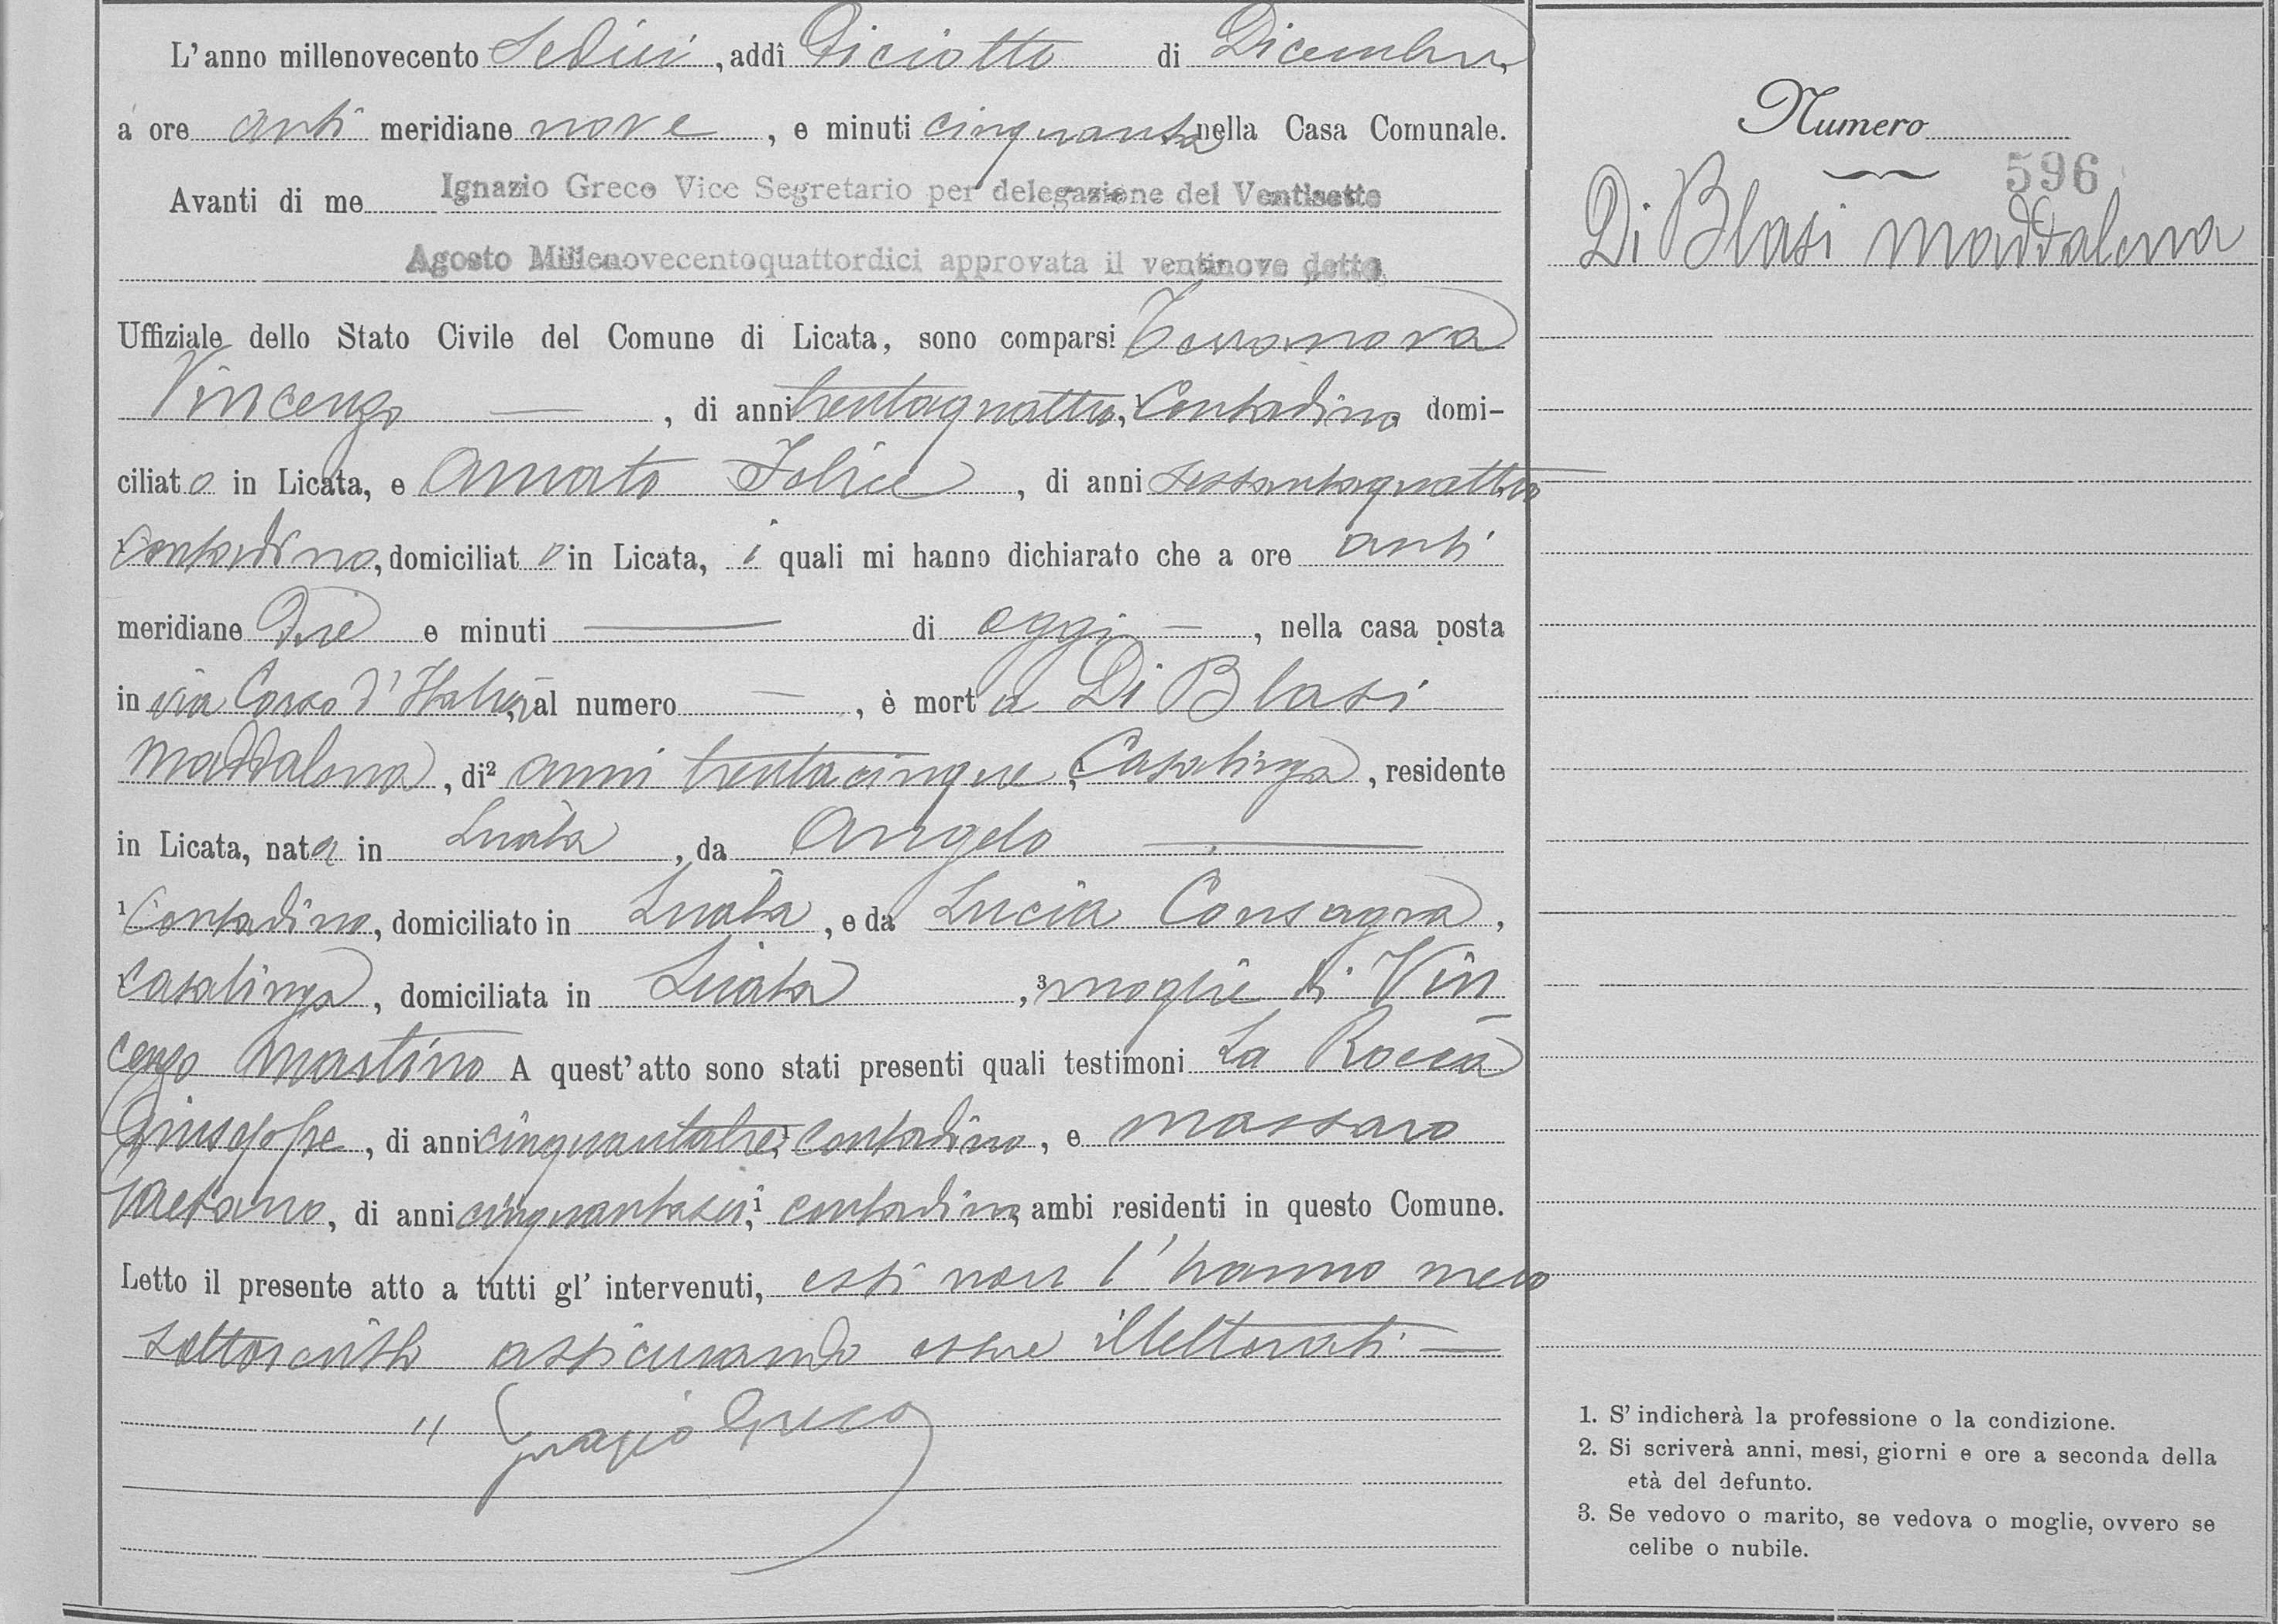 L'anno millenovecento Sedici, addì Diciotto di Dicembre,
a ore anti meridiane nove, e minuti cinquanta nella Casa Comunale.
Avanti di me Ignazio Greco Vice Segretario per delegazione del Ventisette
Agosto Millenovecentoquattordici approvata il ventinove detto
Uffiziale dello Stato Civile del Comune di Licata, sono comparsi Terranova
Vincenzo — , di anni trentaquattro, ¹Contadino domi-
ciliato in Licata, e Amato Felice, di anni sessantaquattro
¹Contadino, domiciliato in Licata, i quali mi hanno dichiarato che a ore anti
meridiane tre e minuti — di oggi —, nella casa posta
in via Corso d'Italia, al numero —, è morta Di Blasi
Maddalena, di² anni trentacinque, ¹Casalinga, residente
in Licata, nata in Licata, da Angelo —
¹Contadino, domiciliato in Licata, e da Lucia Consagra,
¹Casalinga, domiciliata in Licata, ³moglie di Vin
cenzo Mastino A quest'atto sono stati presenti quali testimoni La Rocca
Giuseppe, di anni cinquantatre, ¹contadino, e Massaro
Gaetano, di anni cinquantasei, ¹contadino, ambi residenti in questo Comune.
Letto il presente atto a tutti gl'intervenuti, essi non l'hanno meco
sottoscritto assicurando essere illetterati —
" Ignazio Greco
Numero
596
Di Blasi Maddalena
1. S'indicherà la professione o la condizione.
2. Si scriverà anni, mesi, giorni e ore a seconda della
età del defunto.
3. Se vedovo o marito, se vedova o moglie, ovvero se
celibe o nubile.